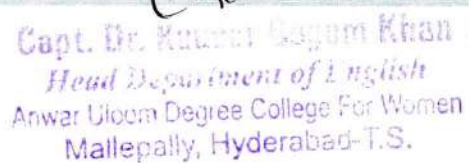 Capt. Dr. Begum Khan
Head Department of English
Anwar Uloom Degree College For Women
Mallepally, Hyderabad-T.S.